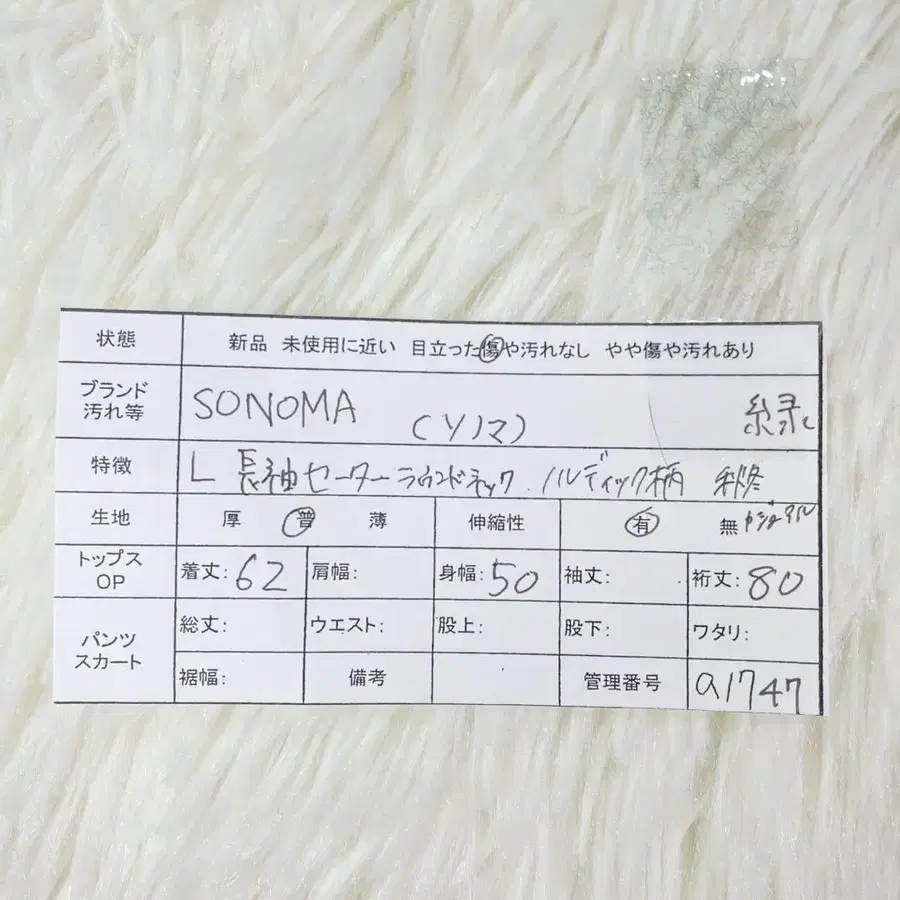 状態 新品 未使用に近い 目立った傷や汚れなし やや傷や汚れあり
ブランド
汚れ等 SONOMA (ソノマ) 緑
特徴 L 長袖セーター ラウンドネック. ノルディック柄 秋冬
カジュアル
生地 厚 普 薄 伸縮性 有 無
トップス
OP 着丈: 62 肩幅: 身幅: 50 袖丈: 裄丈: 80
パンツ
スカート 総丈: ウエスト: 股上: 股下: ワタリ:
裾幅: 備考 管理番号 a1747